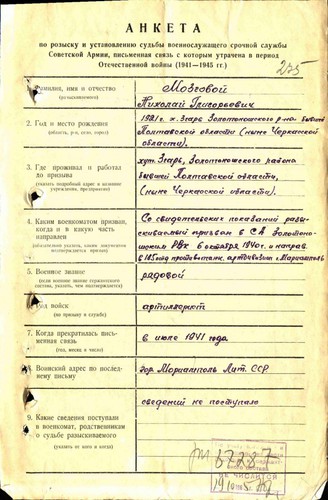 АНКЕТА
по розыску и установлению судьбы военнослужащего срочной службы
Советской Армии, письменная связь с которым утрачена в период
Отечественной войны (1941—1945 гг.)
275
Фамилия, имя и отчество
(разыскиваемого)
Мозговой
Николай Григорьевич
2. Год и место рождения
(область, р-н, село, город)
1921 г. х. Згарь Золотоношского р-на бывшей
Полтавской области (ныне Черкасской
области).
3. Где проживал и работал
до призыва
(указать подробный адрес и название
учреждения, предприятия)
хут. Згарь, Золотоношского района
бывшей Полтавской области,
(ныне Черкасской области).
4. Каким военкоматом призван,
когда и в какую часть
направлен
Со свидетельских показаний разы-
скиваемый призван в СА Золотоно-
шским РВК 6 октября 1940 г. и направ.
в 185 отд. противотанк. артдивизион г. Мариамполь
5. Военное звание
рядовой
Род войск
(по призыву и службе)
артиллерист
7. Когда прекратилась пись-
менная связь
(год, месяц и число)
в июле 1941 года
8. Воинский адрес по послед-
нему письму
гор. Мариамполь Лит. ССР.
9. Какие сведения поступали
в военкомат, родственникам
о судьбе разыскиваемого
(указать не кого и когда)
сведений не поступало
87287
НЕ ЧИСЛИТСЯ